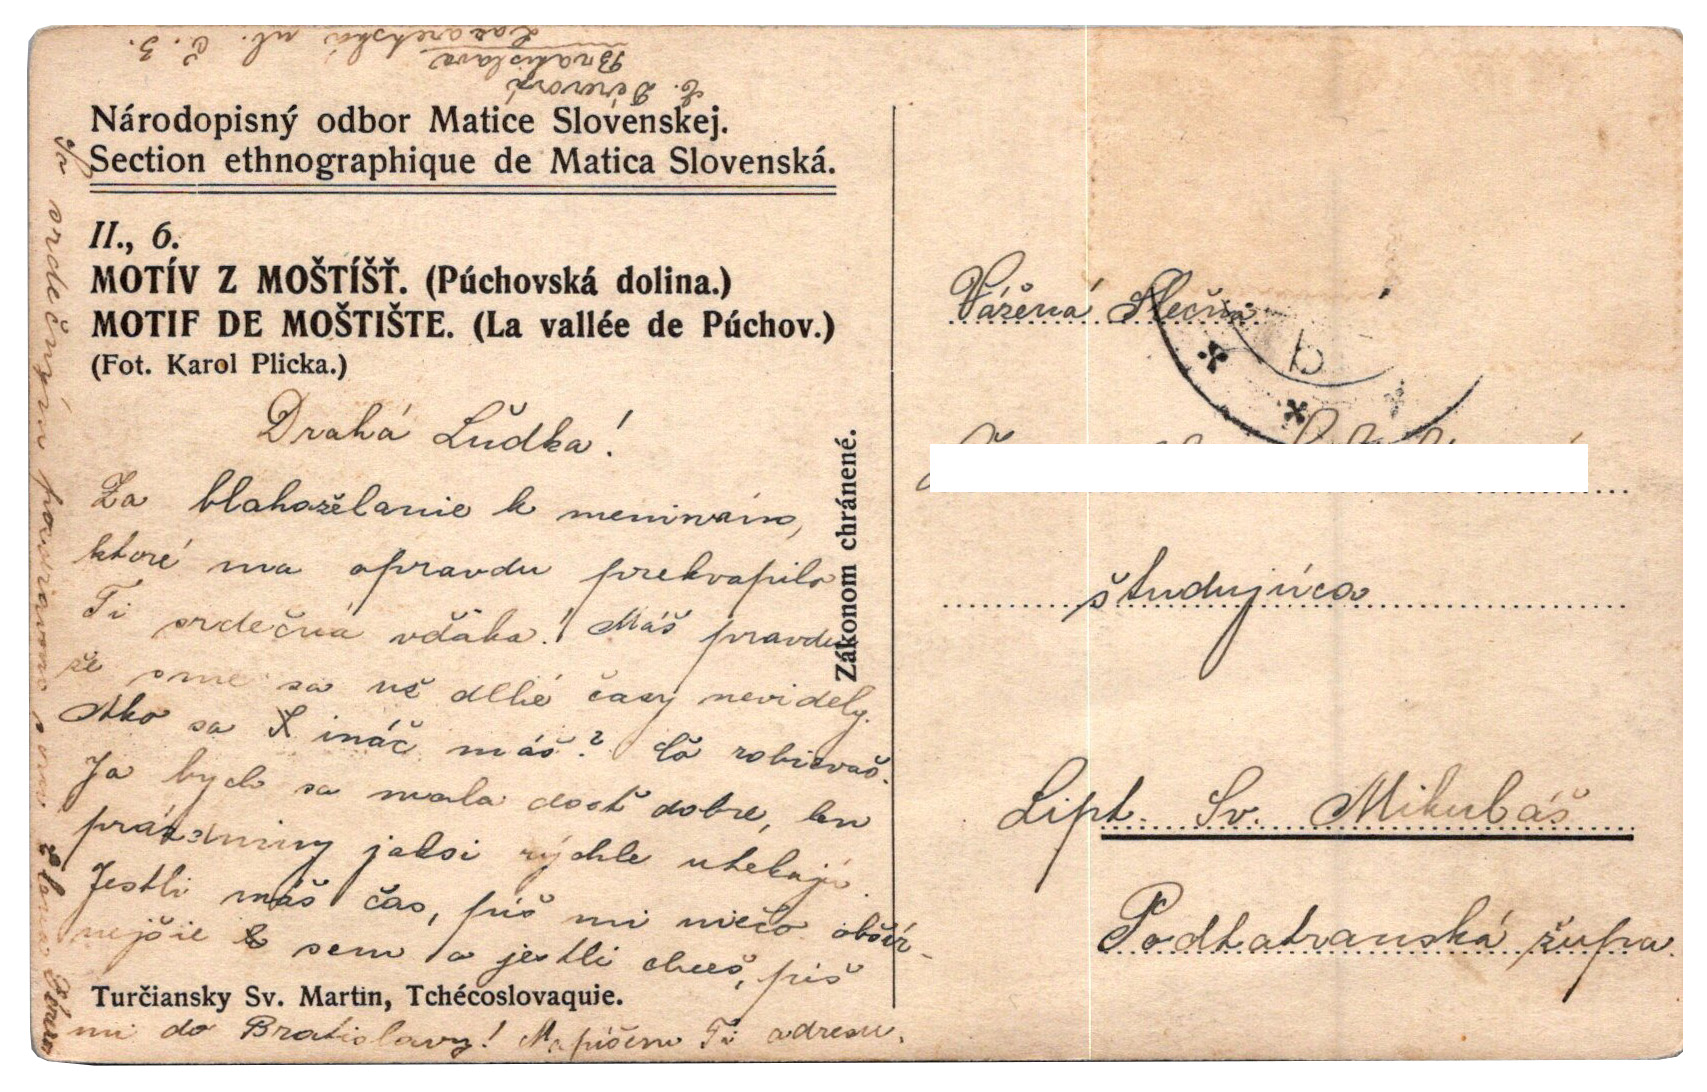 Lazaretská ul. č. 3.
Bratislava
Národopisný odbor Matice Slovenskej.
Section ethnographique de Matica Slovenská.
II., 6.
MOTÍV Z MOŠTÍŠŤ. (Púchovská dolina.)
MOTIF DE MOŠTIŠTE. (La vallée de Púchov.)
(Fot. Karol Plicka.)
Drahá Ludka!
Za blahoželanie k meninám,
ktoré ma opravdu prekvapilo
Ti srdečná vďaka! Máš pravdu
že sme sa už dlhé časy nevidely.
Ako sa ináč máš? Čo robievaš.
Ja bych sa mala dosť dobre, len
prázdniny jaksi rýchle utekajú.
Jestli máš čas, píš mi niečo obšír-
nejšie sem a jestli chceš, píš
Turčiansky Sv. Martin, Tchécoslovaquie.
mi do Bratislavy! Napíšem Ti adresu.
srdečným pozdravom
Elena
Zákonom chránené.
Vážená Slečna
b
študujúca
Lipt. Sv. Mikuláš
Podtatranská župa.